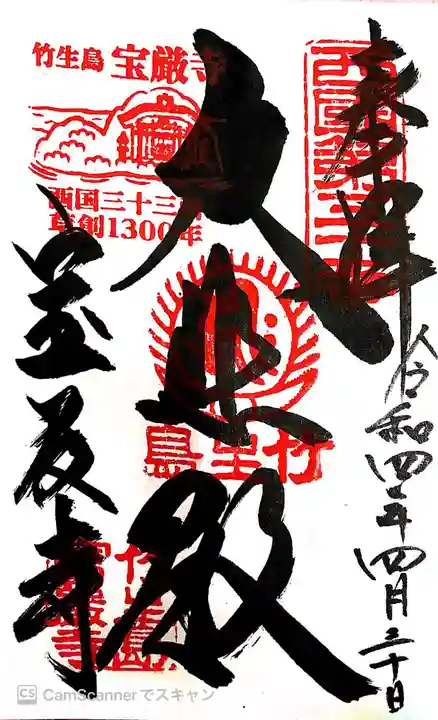 奉拝
令和四年四月三十日
大悲殿
宝厳寺
竹生島 宝厳寺
西国三十三所
草創1300年
竹生島
CS CamScannerでスキャン